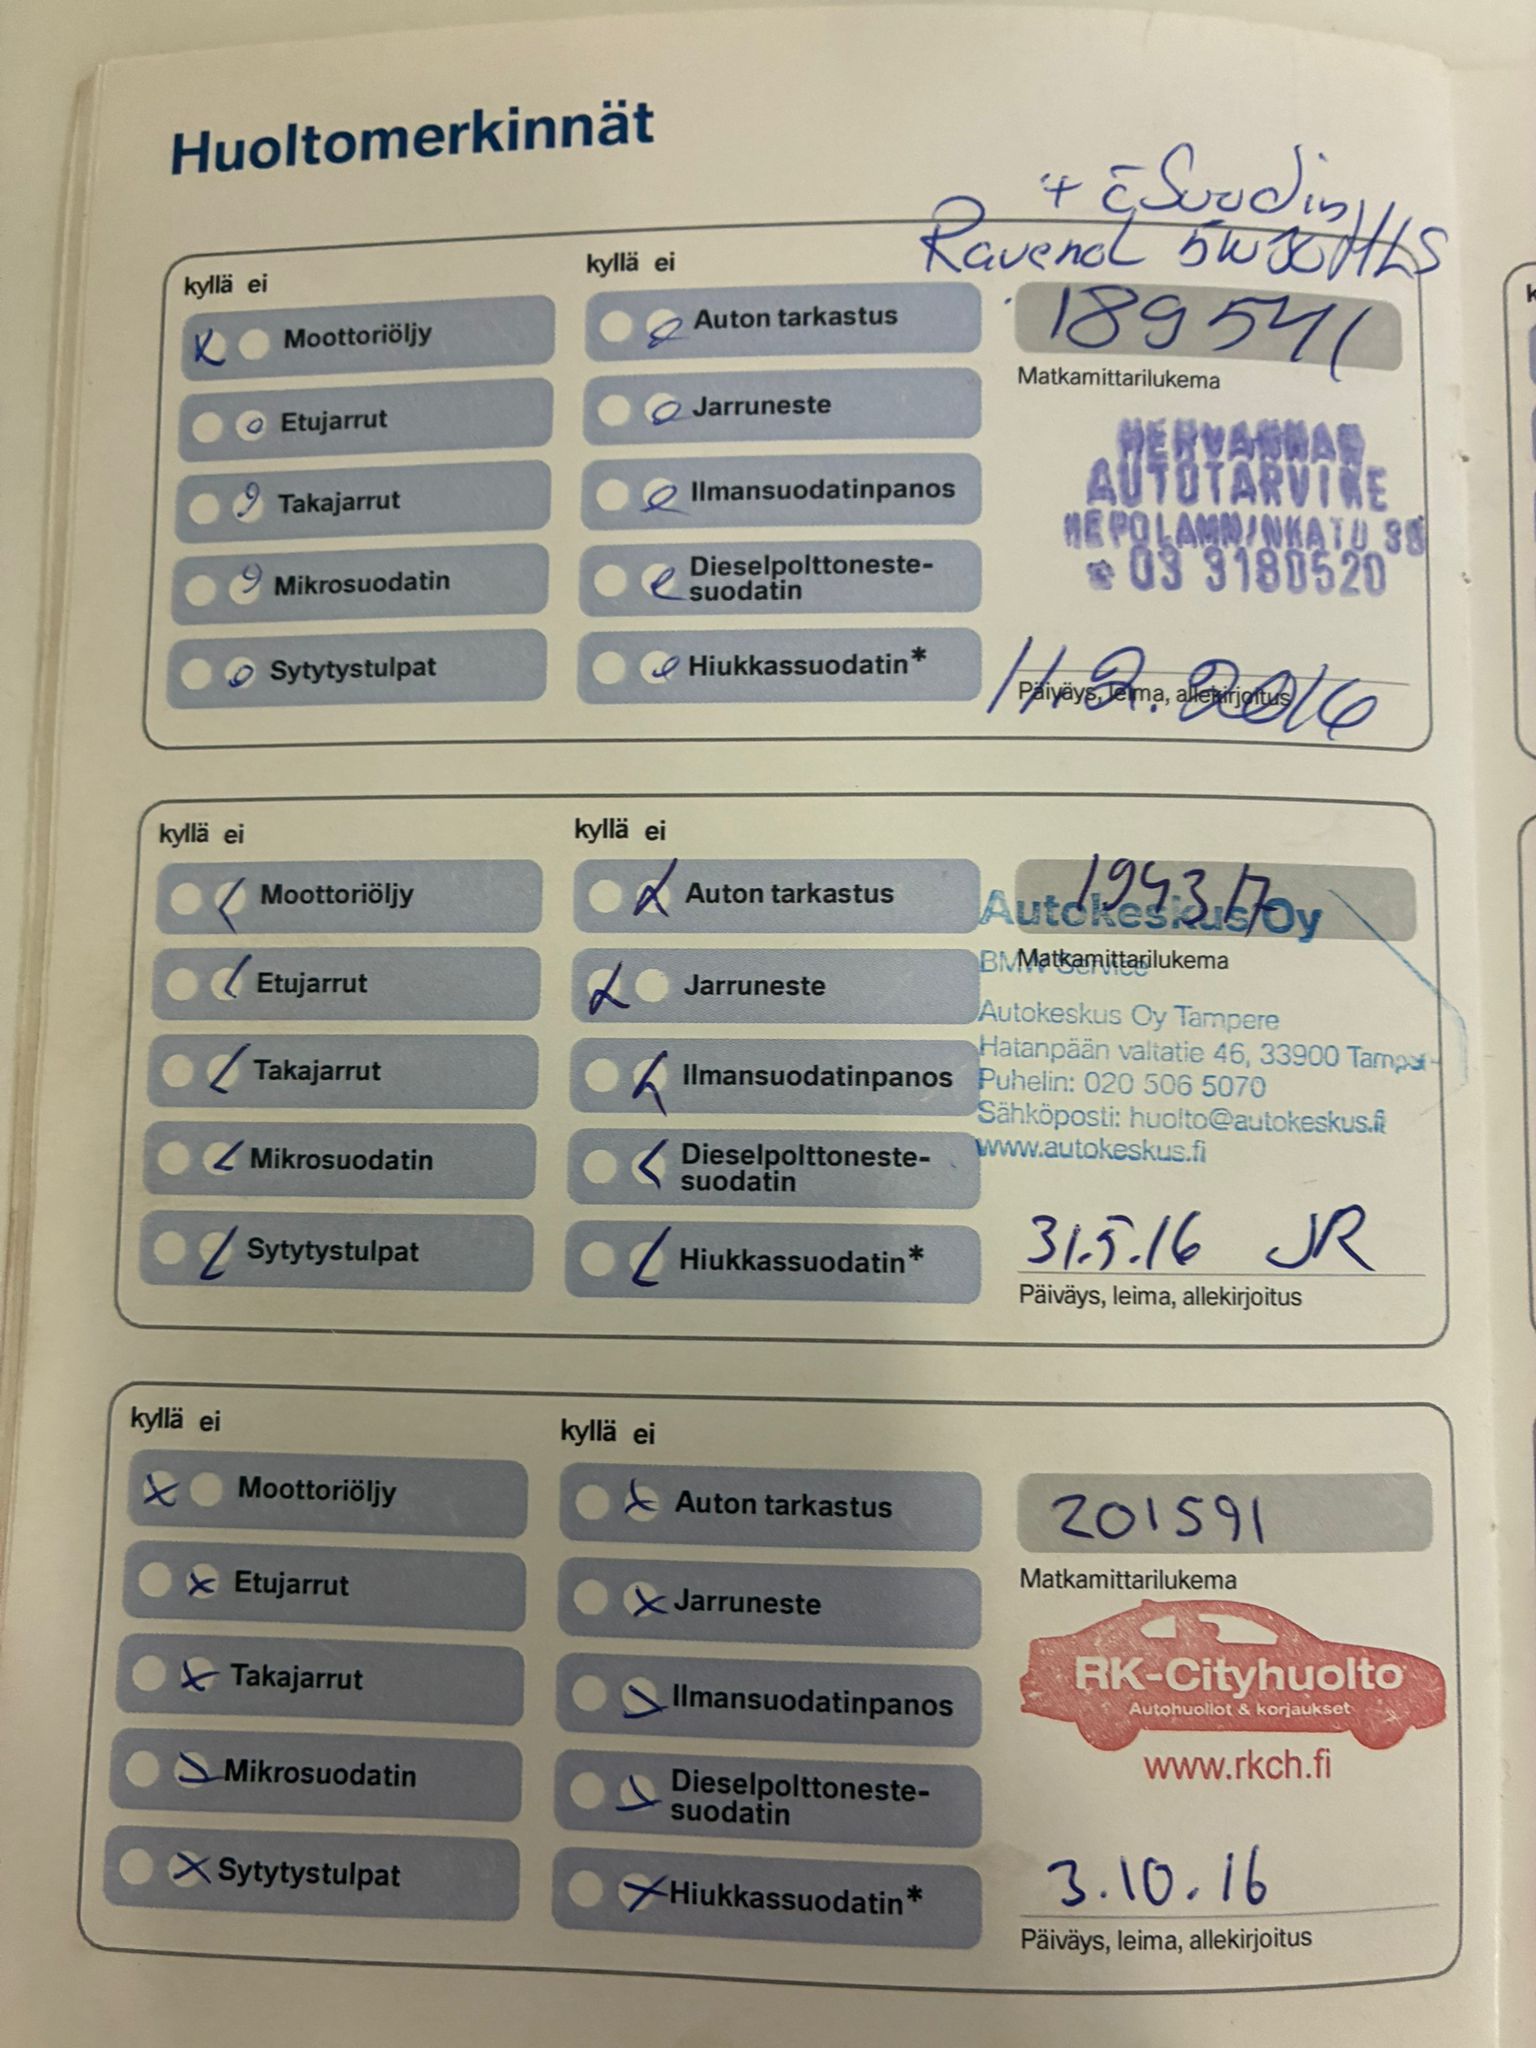 Huoltomerkinnät
+ öSuodin
Ravenol 5W30 HLS
kyllä ei
kyllä ei
Moottoriöljy
Auton tarkastus
189541
Matkamittarilukema
Etujarrut
Jarruneste
HERVANNAN
AUTOTARVIKE
HEPOLAMMINKATU 36
☎ 03 3180520
Takajarrut
Ilmansuodatinpanos
Mikrosuodatin
Dieselpolttoneste-
suodatin
Sytytystulpat
Hiukkassuodatin*
11.2.2016
Päiväys, leima, allekirjoitus
kyllä ei
kyllä ei
Moottoriöljy
Auton tarkastus
194317
Autokeskus Oy
Matkamittarilukema
BMW Service
Etujarrut
Jarruneste
Autokeskus Oy Tampere
Hatanpään valtatie 46, 33900 Tampere
Puhelin: 020 506 5070
Sähköposti: huolto@autokeskus.fi
www.autokeskus.fi
Takajarrut
Ilmansuodatinpanos
Mikrosuodatin
Dieselpolttoneste-
suodatin
Sytytystulpat
Hiukkassuodatin*
31.5.16 JR
Päiväys, leima, allekirjoitus
kyllä ei
kyllä ei
Moottoriöljy
Auton tarkastus
201591
Matkamittarilukema
Etujarrut
Jarruneste
RK-Cityhuolto
Autohuollot & korjaukset
www.rkch.fi
Takajarrut
Ilmansuodatinpanos
Mikrosuodatin
Dieselpolttoneste-
suodatin
Sytytystulpat
Hiukkassuodatin*
3.10.16
Päiväys, leima, allekirjoitus